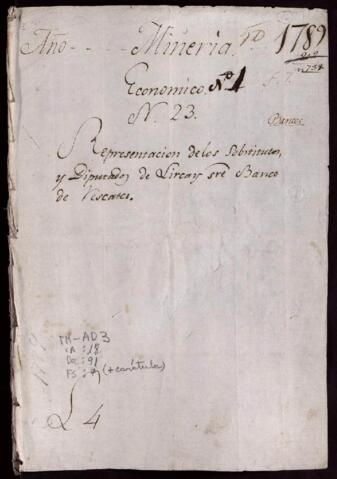 Año Mineria. 1789
Economico. N.º 1
N. 23.
Bancos
Representacion delos Sobstitutos,
y Diputados de Lircay sre Banco
de Rescates.
TM-AD3
CA: 18
DC: 91
FS: 7 (+ carátula)
L 4